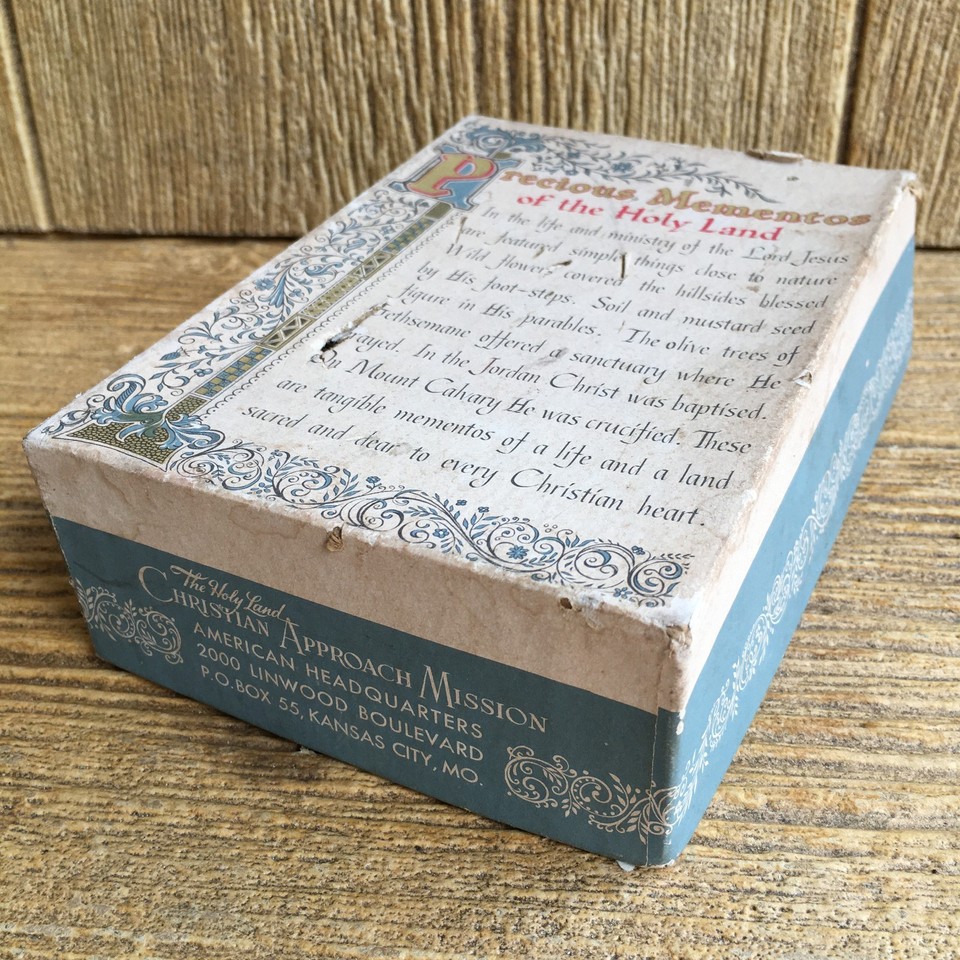 Precious Mementos
of the Holy Land
In the life and ministry of the Lord Jesus
are featured simple things close to nature
Wild flowers covered the hillsides blessed
by His foot-steps. Soil and mustard seed
figure in His parables. The olive trees of
Gethsemane offered a sanctuary where He
prayed. In the Jordan Christ was baptised.
On Mount Calvary He was crucified. These
are tangible mementos of a life and a land
sacred and dear to every Christian heart.
The Holy Land
CHRISTIAN APPROACH MISSION
AMERICAN HEADQUARTERS
2000 LINWOOD BOULEVARD
P.O.BOX 55, KANSAS CITY, MO.